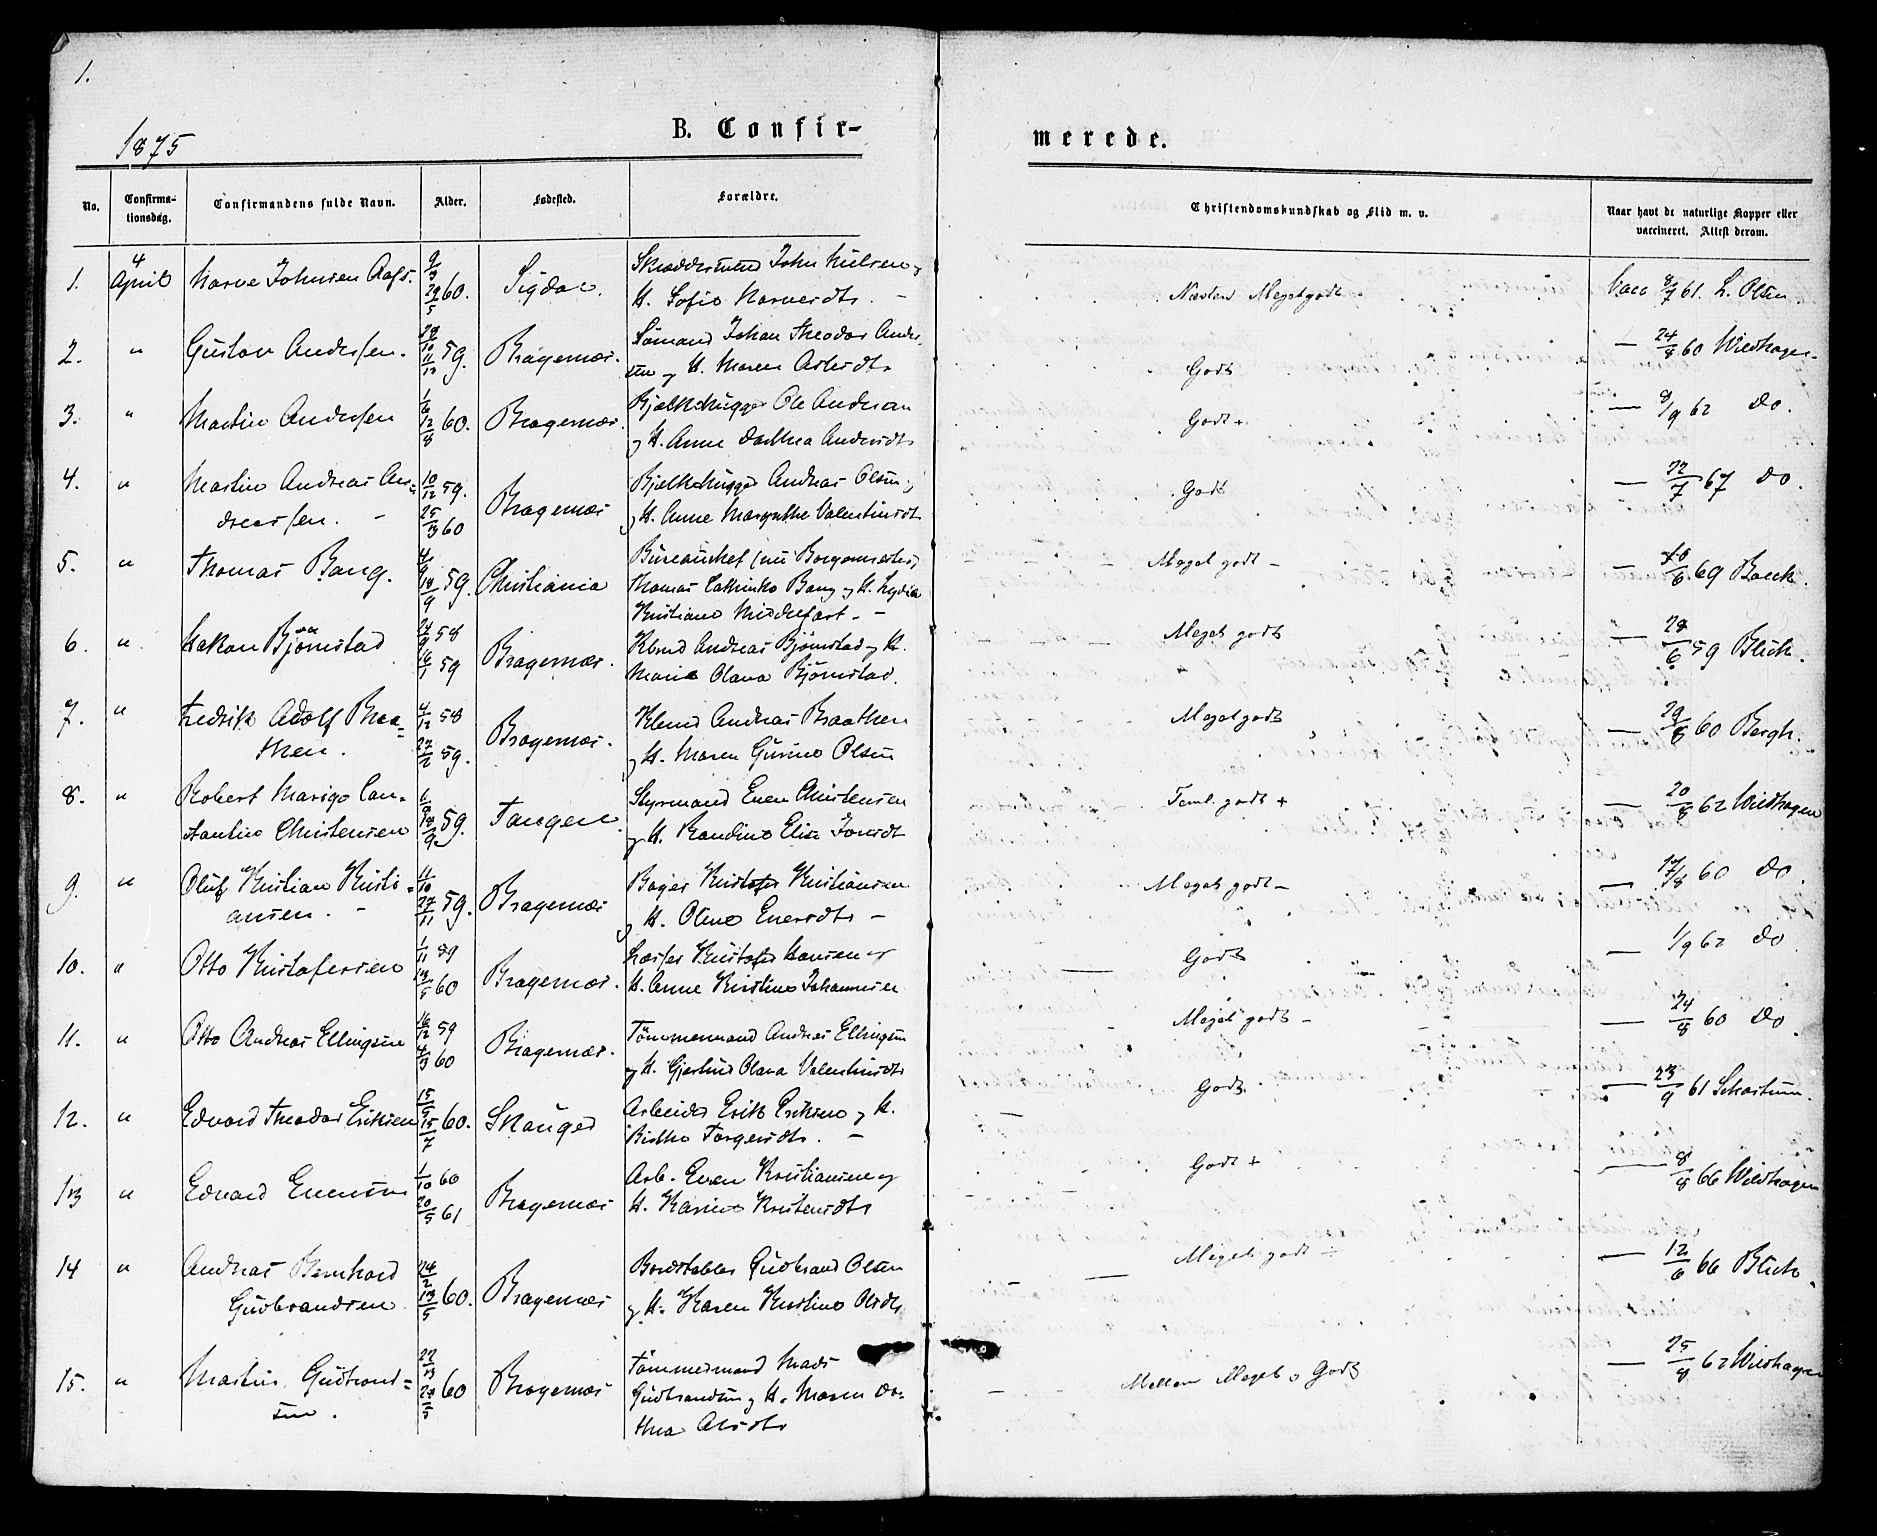 1.
1875
B. Confir-
merede.
No.
Confirma-
tionsdag.
Confirmandens fulde Navn.
Alder.
Fødested.
Forældre.
Christendomskundskab og Flid m. v.
Naar havt de naturlige Kopper eller
vaccineret. Attest derom.
1. 4 April Narve Johnsen Aass. 60. Sigdal. Skræddersvend John Nielsen og
H. Sofie Narvesdtr. Næsten Meget godt Vacc 61. L. Olsen
2. " Gustav Andersen. 59. Bragernæs. Sømand Johan Theodor Ander-
sen og H. Maren Aslesdtr Godt — 24/8 60 Wildhagen
3. " Martin Andersen 12/8 60. Bragernæs. Bjælkehugger Ole Andersen
og H. Anne Dorthea Andersdtr Godt + — 8/9 62 Do.
4. " Martin Andreas An-
dreassen. 10/12 59. 25/3 60 Bragernæs Bjelkehugger Andreas Olsen
og H. Anne Margrethe Valentinsdtr Godt — 22/7 67 Do.
5. " Thomas Bang. 18/9 59. Christiania Bureauchef (nu Borgermester)
Thomas Cathinko Bang og H. Lydia
Kristiane Middelfart. Meget godt — 69 Boeck.
6. " Hakon Bjørnstad 58 16/1 59 Bragernæs. Kbmd Andreas Bjørnstad og H.
Marie Olava Bjørnstad. Meget godt — 28/6 59 Blich.
7. " Fredrik Adolf Braa-
then. 4/12 58 27/2 59. Bragernæs. Kbmd Andreas Braathen
og H. Maren Gurine Olsen Meget godt — 29/8 60 Bergh.
8. " Robert Marigo Con-
stantin Christensen 59. Tangen. Styrmand Even Christensen
og H. Randine Elise Jonsdt Teml. godt + — 20/8 62 Wildhagen
9. " Oluf Kristian Kristi-
ansen. 11/10 27/11 59. Bragernæs Bager Kristofer Kristiansen
og H. Oline Eversdtr Meget godt — 17/8 60 Do.
10. " Otto Kristofersen 1/11 59 13/5 60 Bragernæs. Kristofer Hansen og
H. Anne Kristine Johannesen Godt — 1/9 62 Do
11. " Otto Andreas Ellingsen 16/12 59 4/3 60 Bragernæs. Tømmermand Andreas Ellingsen
og H. Gjertine Olava Valentinsdtr Meget godt — 24/8 60 Do.
12. " Edvard Theodor Eriksen 15/7 60. Skouger Arbeider Erik Eriksen og H.
Birthe Torgersdtr. Godt — 23/9 61 Schartum.
13 " Edvard Evensen 1/10 60 20/5 61 Bragernæs Arb. Even Kristiansen og
H. Karine Kristensdtr Godt + — 8/8 66 Wildhagen
14 " Andreas Bernhard
Gudbrandsen 24/2 13/5 60. Bragernæs Bordstabler Gudbrand Olsen
og H. Karen Kristine Olsdtr Meget godt ÷ — 12/6 66 Blich.
15. " Martin Gudbrand-
sen. 60 Bragernæs Tømmermand Mads
Gudbrandsen og H. Maren Do-
thea Olsdtr Mellem Meget og Godt — 25/8 62 Wildhagen